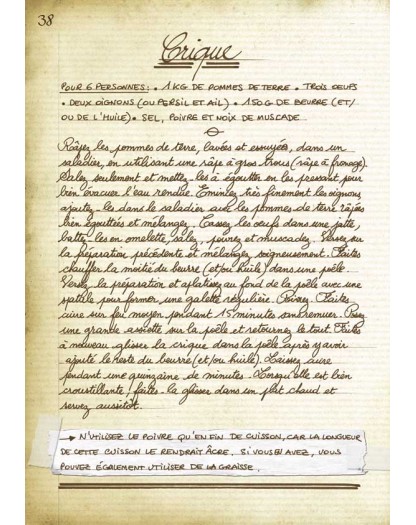 38
Crique
POUR 6 PERSONNES : • 1 KG DE POMMES DE TERRE • TROIS OEUFS
• DEUX OIGNONS (OU PERSIL ET AIL) • 150 G DE BEURRE (ET/
OU DE L'HUILE) • SEL, POIVRE ET NOIX DE MUSCADE
Râpez les pommes de terre, lavées et essuyées, dans un
saladier, en utilisant une râpe à gros trous (râpe à fromage).
Salez seulement et mettez-les à égoutter en les pressant pour
bien évacuer l'eau rendue. Émincez très finement les oignons
ajoutez-les dans le saladier avec les pommes de terre râpées
bien égouttées et mélangez. Cassez les oeufs dans une jatte,
battez-les en omelette, salez, poivrez et muscadez. Versez sur
la préparation précédente et mélangez soigneusement. Faites
chauffer la moitié du beurre (et/ou huile) dans une poêle.
Versez la préparation et aplatissez au fond de la poêle avec une
spatule pour former une galette régulière. Couvrez. Faites
cuire sur feu moyen pendant 15 minutes sans remuer. Posez
une grande assiette sur la poêle et retournez le tout. Faites
à nouveau glisser la crique dans la poêle après y avoir
ajouté le reste du beurre (et/ou huile). Laissez cuire
pendant une quinzaine de minutes. Lorsqu'elle est bien
croustillante, faites-la glisser dans un plat chaud et
servez aussitôt.
→ N'UTILISEZ LE POIVRE QU'EN FIN DE CUISSON, CAR LA LONGUEUR
DE CETTE CUISSON LE RENDRAIT ÂCRE. SI VOUS EN AVEZ, VOUS
POUVEZ ÉGALEMENT UTILISER DE LA GRAISSE.